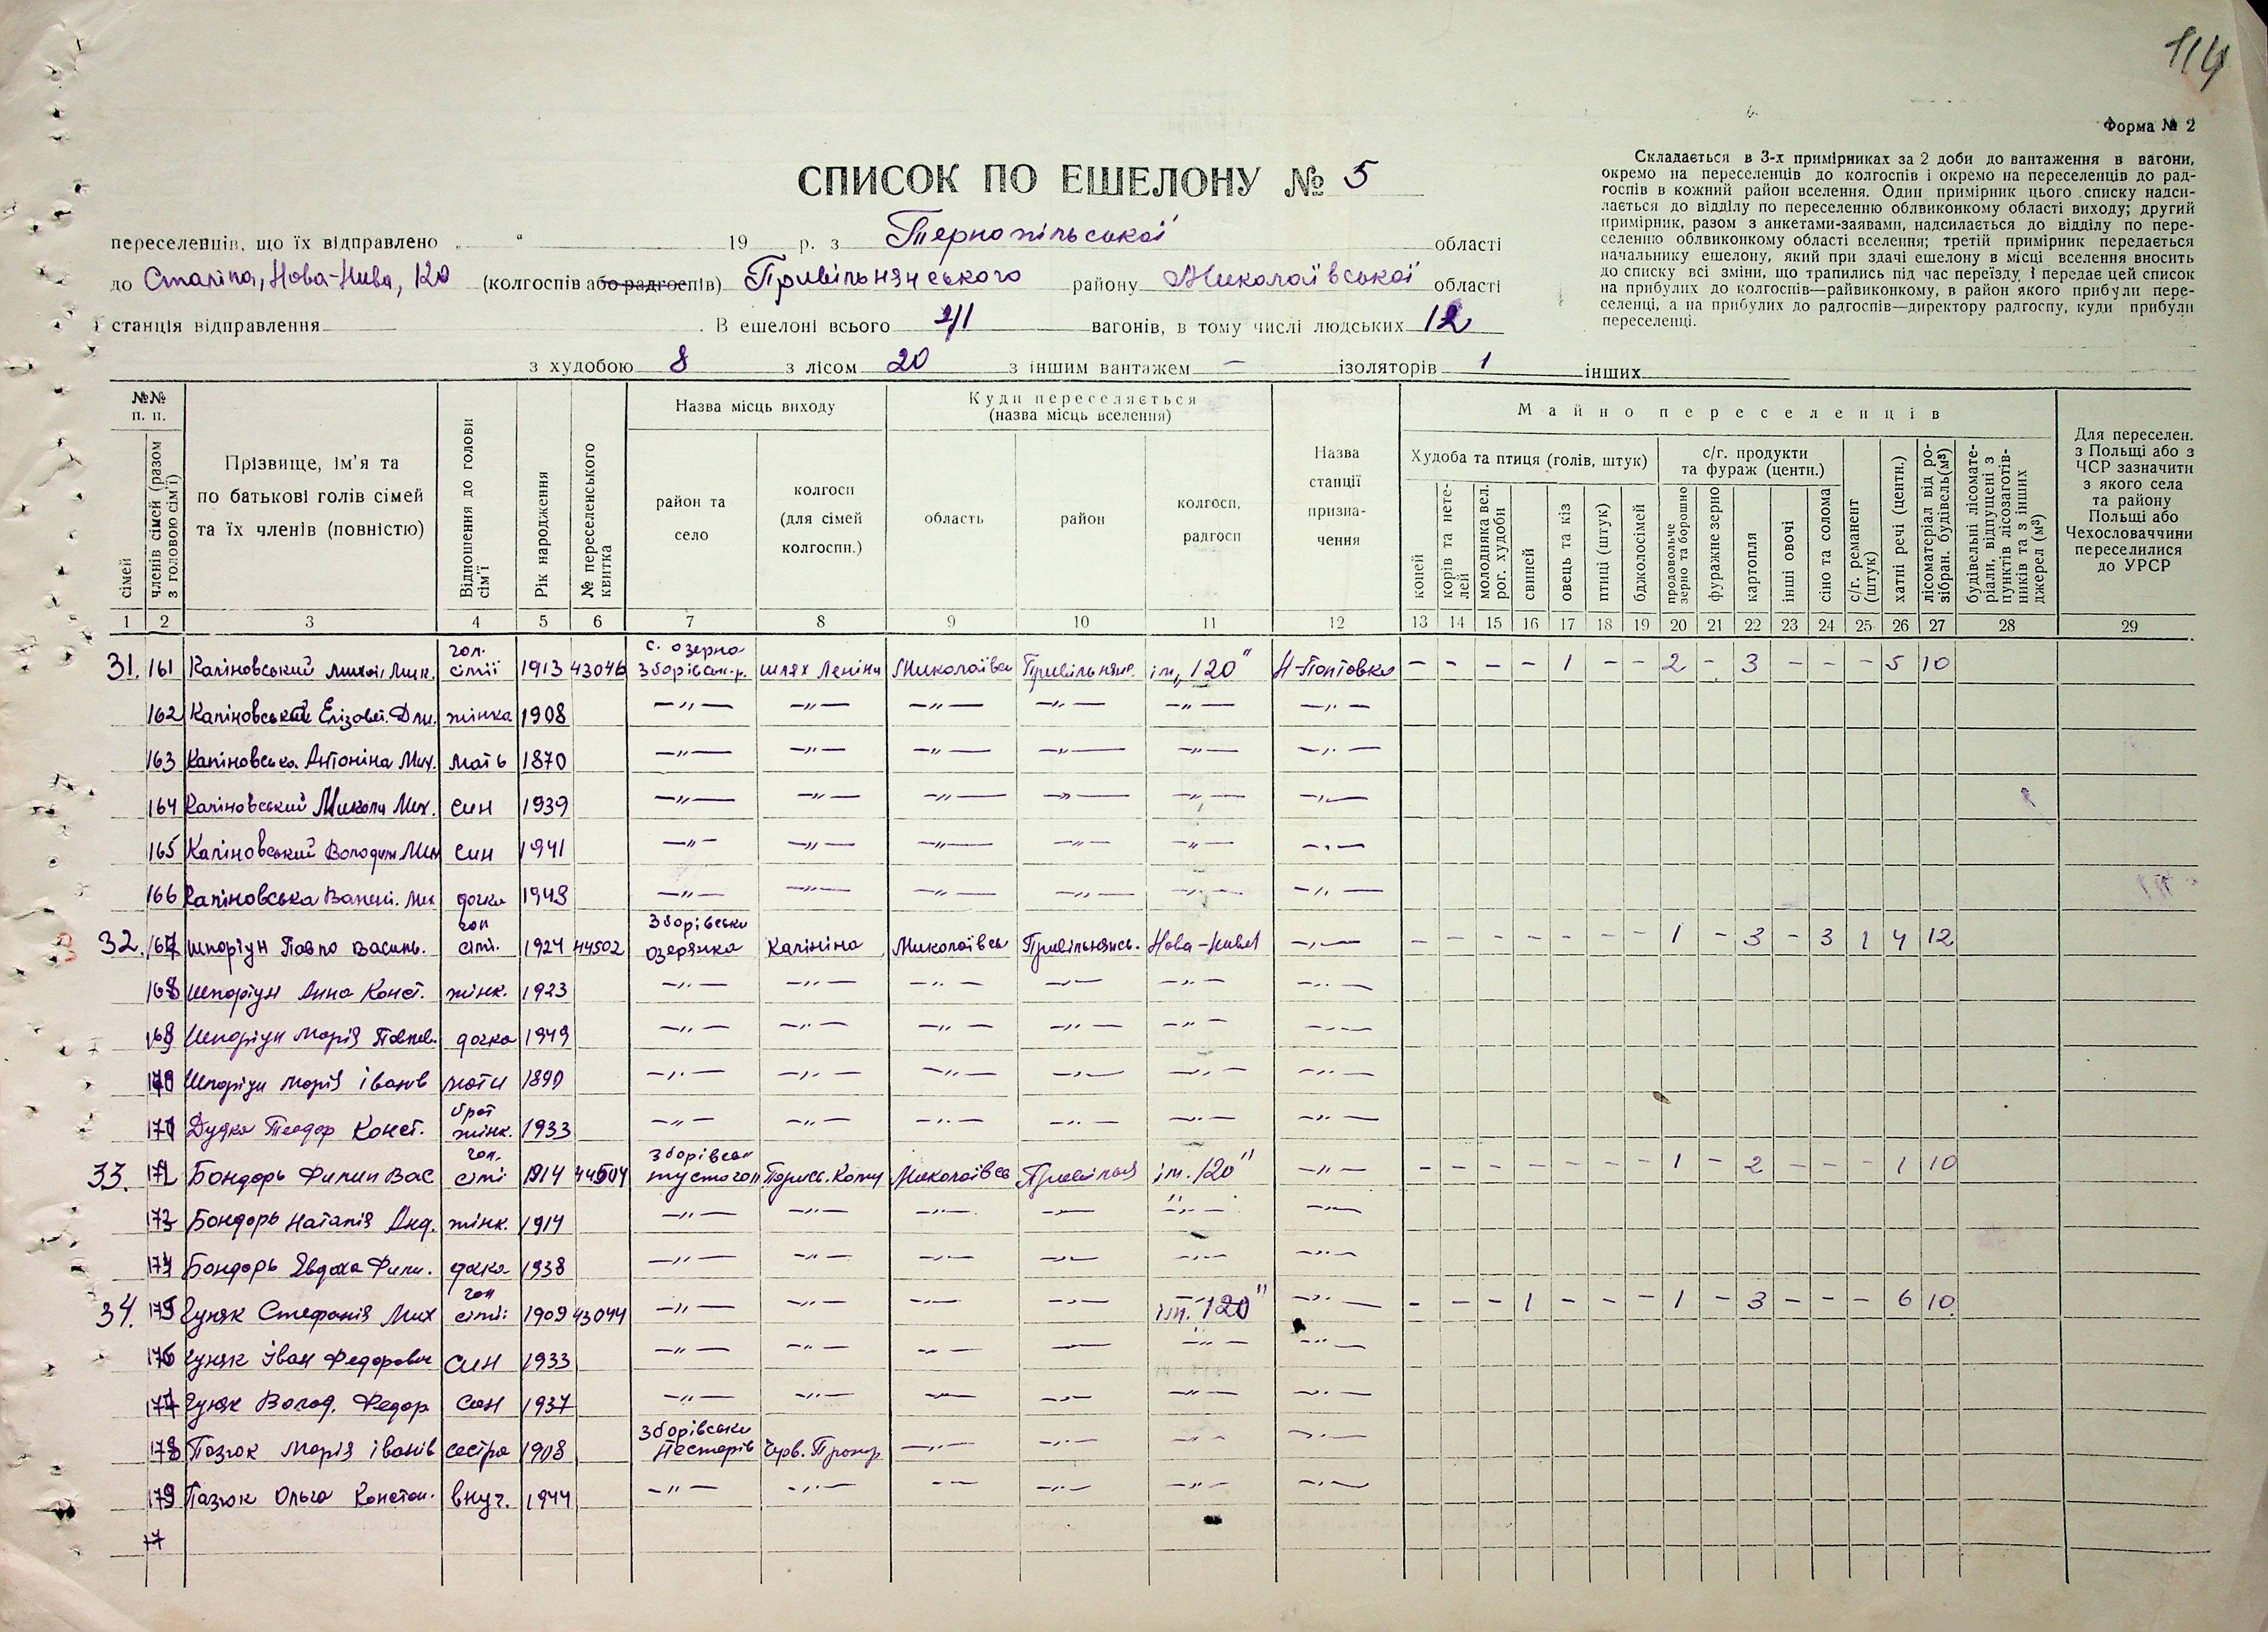 114
Форма № 2
СПИСОК ПО ЕШЕЛОНУ № 5
Складається в 3-х примірниках за 2 доби до вантаження в вагони,
окремо на переселенців до колгоспів і окремо на переселенців до рад-
госпів в кожний район вселення. Один примірник цього списку надси-
лається до відділу по переселенню облвиконкому області виходу; другий
примірник, разом з анкетами-заявами, надсилається до відділу по пере-
селенню облвиконкому області вселення; третій примірник передається
начальнику ешелону, який при здачі ешелону в місці вселення вносить
до списку всі зміни, що трапились під час переїзду, і передає цей список
на прибулих до колгоспів—райвиконкому, в район якого прибули пере-
селенці, а на прибулих до радгоспів—директору радгоспу, куди прибули
переселенці.
переселенців, що їх відправлено „ “ 19 р. з Тернопільської області
до Сталіна, Нова-Нива, 120 (колгоспів або радгоспів) Привільнянського району Миколаївської області
станція відправлення . В ешелоні всього 41 вагонів, в тому числі людських 12
з худобою 8 з лісом 20 з іншим вантажем — ізоляторів 1 інших
№№ п. п.
сімей
членів сімей (разом з головою сім'ї)
Прізвище, ім'я та по батькові голів сімей та їх членів (повністю)
Відношення до голови сім'ї
Рік народження
№ переселенського квитка
Назва місць виходу
район та село
колгосп (для сімей колгоспн.)
Куди переселяється (назва місць вселення)
область
район
колгосп, радгосп
Назва станції призна-чення
Майно переселенців
Худоба та птиця (голів, штук)
коней
корів та нете-лей
молодняка вел. рог. худоби
свиней
овець та кіз
птиці (штук)
бджолосімей
с/г. продукти та фураж (центн.)
продовольче зерно та борошно
фуражне зерно
картопля
інші овочі
сіно та солома
с/г. реманент (штук)
хатні речі (центн.)
лісоматеріал від ро-зібран. будівель (м³)
будівельні лісомате-ріали, відпущені з пунктів лісозаготів-ників та з інших джерел (м³)
Для переселен. з Польщі або з ЧСР зазначити з якого села та району Польщі або Чехословаччини переселилися до УРСР
1 2 3 4 5 6 7 8 9 10 11 12 13 14 15 16 17 18 19 20 21 22 23 24 25 26 27 28 29
31. 161 Каліновський Михай. Мик. гол. сімії 1913 43046 с. Озерна Зборівськ. р. шлях Леніна Миколаївсь Привільнян. ім. „120" Н-Полтовка - - - - 1 - - 2 - 3 - - - 5 10
162 Каліновська Елізовет. Дм. жінка 1908 —"— —"— —"— —"— —"— —"—
163 Каліновська Антоніна Мих. мать 1870 —"— —"— —"— —"— —"— —"—
164 Каліновський Микола Мих. син 1939 —"— —"— —"— —"— —"— —"—
165 Каліновський Володим. Мих син 1941 —"— —"— —"— —"— —"— —"—
166 Каліновська Валент. Мих дочка 1948 —"— —"— —"— —"— —"— —"—
32. 167 Шпоріун Павло Василь. гол сімї. 1924 44502 Зборівськи Озерянка Калініна Миколаївсь Привільнянсь. Нова-Нива —"— - - - - - - - 1 - 3 - 3 1 4 12
168 Шпоріун Анна Конст. жінк. 1923 —"— —"— —"— —"— —"— —"—
169 Шпоріун Марія Павлов. дочка 1949 —"— —"— —"— —"— —"— —"—
170 Шпоріун Марія Іванів мати 1890 —"— —"— —"— —"— —"— —"—
171 Дудка Теодор Конст. брат жінк. 1933 —"— —"— —"— —"— —"— —"—
33. 172 Бондорь Филип Вас гол. сімї 1914 44504 Зборівськ Паризь. Кому Миколаївсь Привільня ім. 120" —"— - - - - - - - 1 - 2 - - - 1 10
173 Бондорь Наталія Анд. жінк. 1914 —"— —"— —"— —"— —"— —"—
174 Бондорь Євдоха Фили. дочка 1938 —"— —"— —"— —"— —"— —"—
34. 175 Гуняк Стефанія Мих гол сімї: 1909 43044 —"— —"— —"— —"— ім. 120" —"— - - - 1 - - - 1 - 3 - - - 6 10
176 Гуняк Іван Федорович син 1933 —"— —"— —"— —"— —"— —"—
177 Гуняк Волод. Федор син 1937 —"— —"— —"— —"— —"— —"—
178 Пазюк Марія Іванів сестра 1908 Зборівськи Нестерів Черв. Прапор —"— —"— —"— —"—
179 Пазюк Ольга Констан. внуч. 1944 —"— —"— —"— —"— —"— —"—